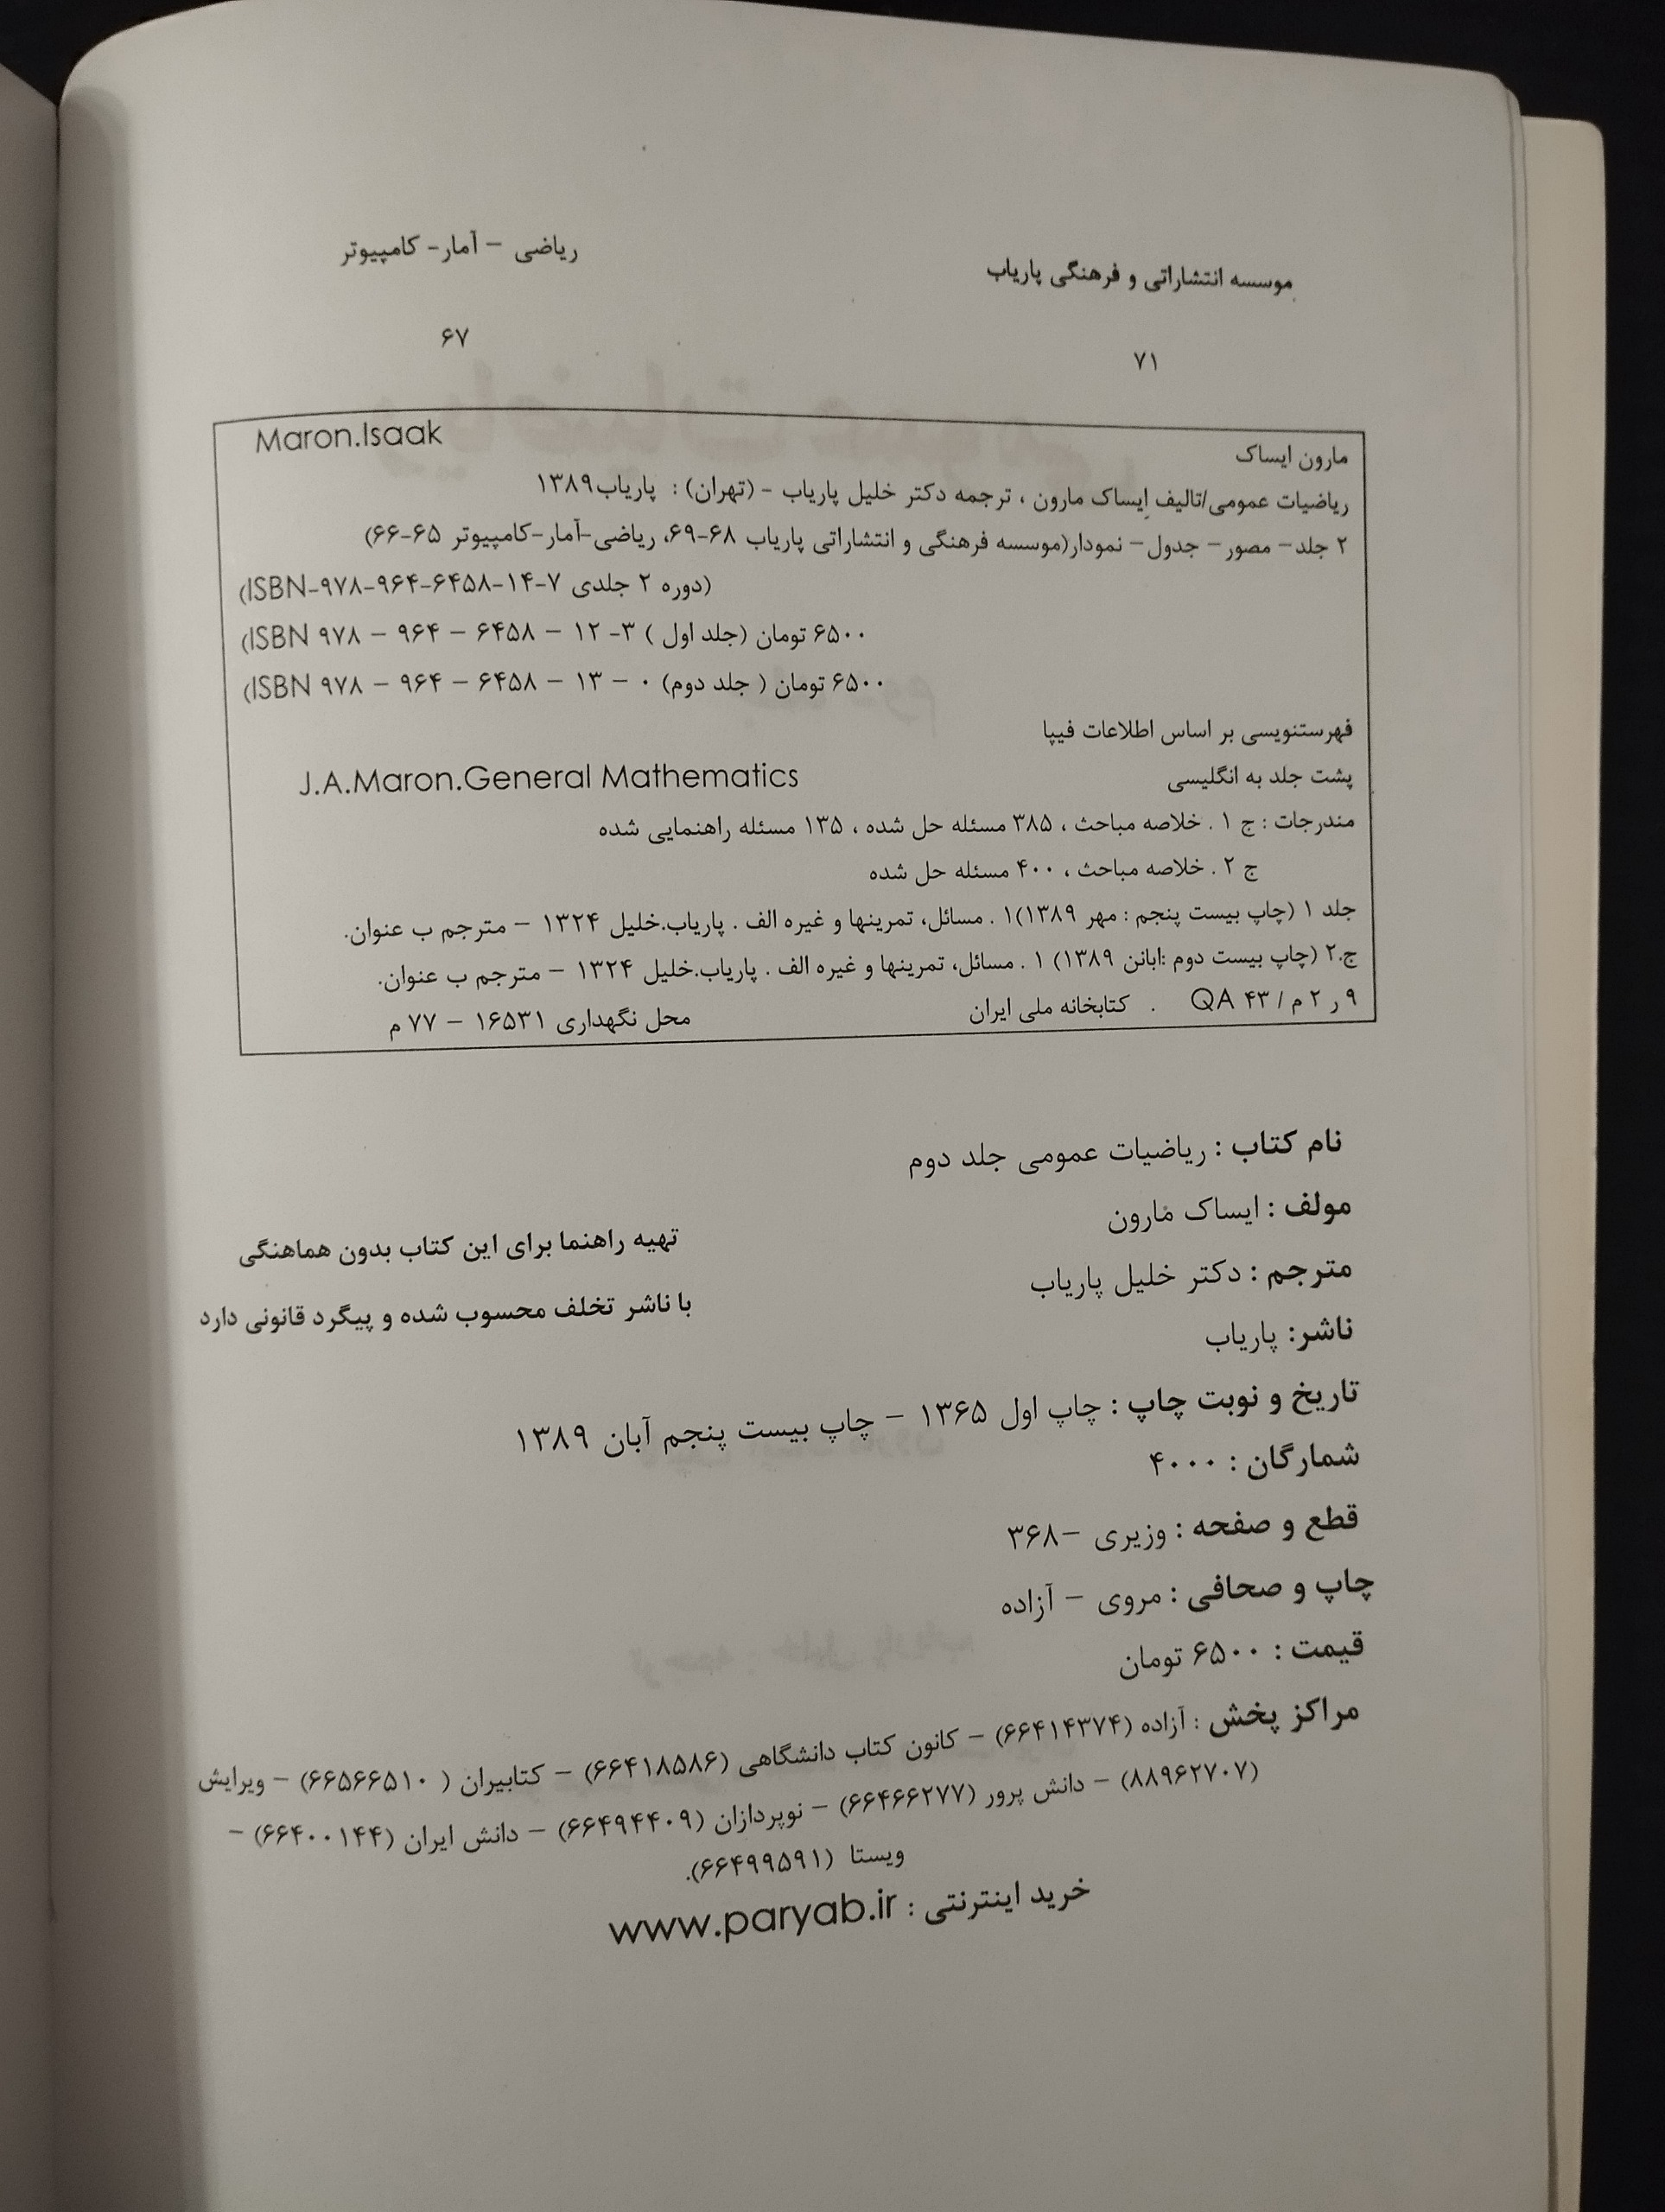 موسسه انتشاراتی و فرهنگی پاریاب
ریاضی – آمار- کامپیوتر
۷۱
۶۷
مارون ایساک
Maron.Isaak
ریاضیات عمومی/تالیف ایساک مارون ، ترجمه دکتر خلیل پاریاب – (تهران) : پاریاب۱۳۸۹
۲ جلد– مصور– جدول– نمودار(موسسه فرهنگی و انتشاراتی پاریاب ۶۸-۶۹، ریاضی-آمار-کامپیوتر ۶۵-۶۶)
(دوره ۲ جلدی ۷-۱۴-۶۴۵۸-۹۶۴-۹۷۸-ISBN)
۶۵۰۰ تومان (جلد اول ) ۳- ۱۲ – ۶۴۵۸ – ۹۶۴ – ۹۷۸ ISBN)
۶۵۰۰ تومان ( جلد دوم) ۰ – ۱۳ – ۶۴۵۸ – ۹۶۴ – ۹۷۸ ISBN)
فهرستنویسی بر اساس اطلاعات فیپا
پشت جلد به انگلیسی J.A.Maron.General Mathematics
مندرجات : ج ۱ . خلاصه مباحث ، ۳۸۵ مسئله حل شده ، ۱۳۵ مسئله راهنمایی شده
ج ۲ . خلاصه مباحث ، ۴۰۰ مسئله حل شده
جلد ۱ (چاپ بیست پنجم : مهر ۱۳۸۹)۱ . مسائل، تمرینها و غیره الف . پاریاب.خلیل ۱۳۲۴ – مترجم ب عنوان.
ج.۲ (چاپ بیست دوم :ابانن ۱۳۸۹) ۱ . مسائل، تمرینها و غیره الف . پاریاب.خلیل ۱۳۲۴ – مترجم ب عنوان.
۹ ر ۲ م / ۴۳ QA . کتابخانه ملی ایران محل نگهداری ۱۶۵۳۱ – ۷۷ م
نام کتاب : ریاضیات عمومی جلد دوم
مولف : ایساک مارون
مترجم : دکتر خلیل پاریاب
ناشر: پاریاب
تهیه راهنما برای این کتاب بدون هماهنگی
با ناشر تخلف محسوب شده و پیگرد قانونی دارد
تاریخ و نوبت چاپ : چاپ اول ۱۳۶۵ – چاپ بیست پنجم آبان ۱۳۸۹
شمارگان : ۴۰۰۰
قطع و صفحه : وزیری –۳۶۸
چاپ و صحافی : مروی – آزاده
قیمت : ۶۵۰۰ تومان
مراکز پخش : آزاده (۶۶۴۱۴۳۷۴) – کانون کتاب دانشگاهی (۶۶۴۱۸۵۸۶) – کتابیران ( ۶۶۵۶۶۵۱۰) – ویرایش
(۸۸۹۶۲۷۰۷) – دانش پرور (۶۶۴۶۶۲۷۷) – نوپردازان (۶۶۴۹۴۴۰۹) – دانش ایران (۶۶۴۰۰۱۴۴) –
ویستا (۶۶۴۹۹۵۹۱).
خرید اینترنتی : www.paryab.ir